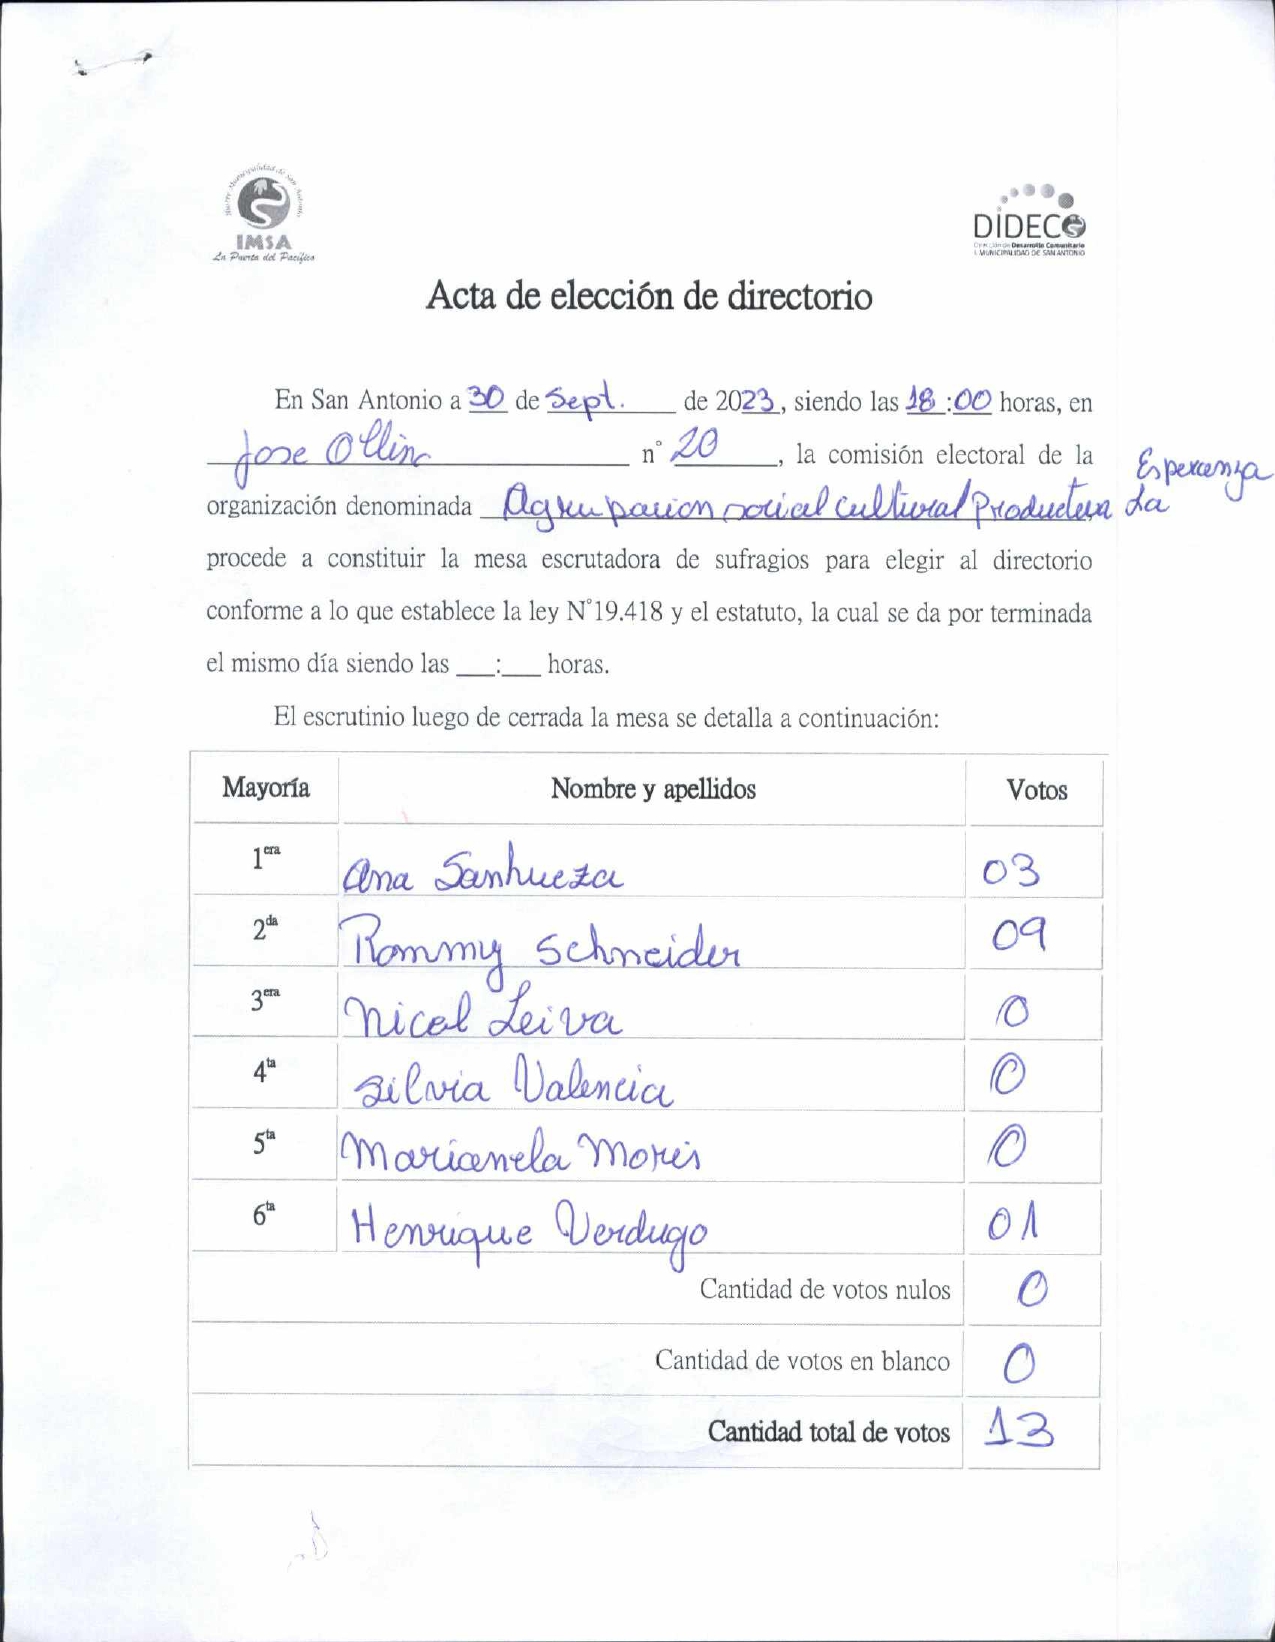 Ilustre Municipalidad de San Antonio
IMSA
La Puerta del Pacífico
DIDECO
Dirección de Desarrollo Comunitario
I. MUNICIPALIDAD DE SAN ANTONIO
Acta de elección de directorio
En San Antonio a 30 de Sept. de 2023, siendo las 18:00 horas, en
Jose Ollino n° 20, la comisión electoral de la
organización denominada Agrupacion social cultural Productiva La Esperanza
procede a constituir la mesa escrutadora de sufragios para elegir al directorio
conforme a lo que establece la ley N°19.418 y el estatuto, la cual se da por terminada
el mismo día siendo las ___:___ horas.
El escrutinio luego de cerrada la mesa se detalla a continuación:
Mayoría Nombre y apellidos Votos
1era Ana Sanhueza 03
2da Rommy Schneider 09
3era Nicol Leiva 0
4ta Silvia Valencia 0
5ta Marianela Moris 0
6ta Henrique Verdugo 01
Cantidad de votos nulos 0
Cantidad de votos en blanco 0
Cantidad total de votos 13